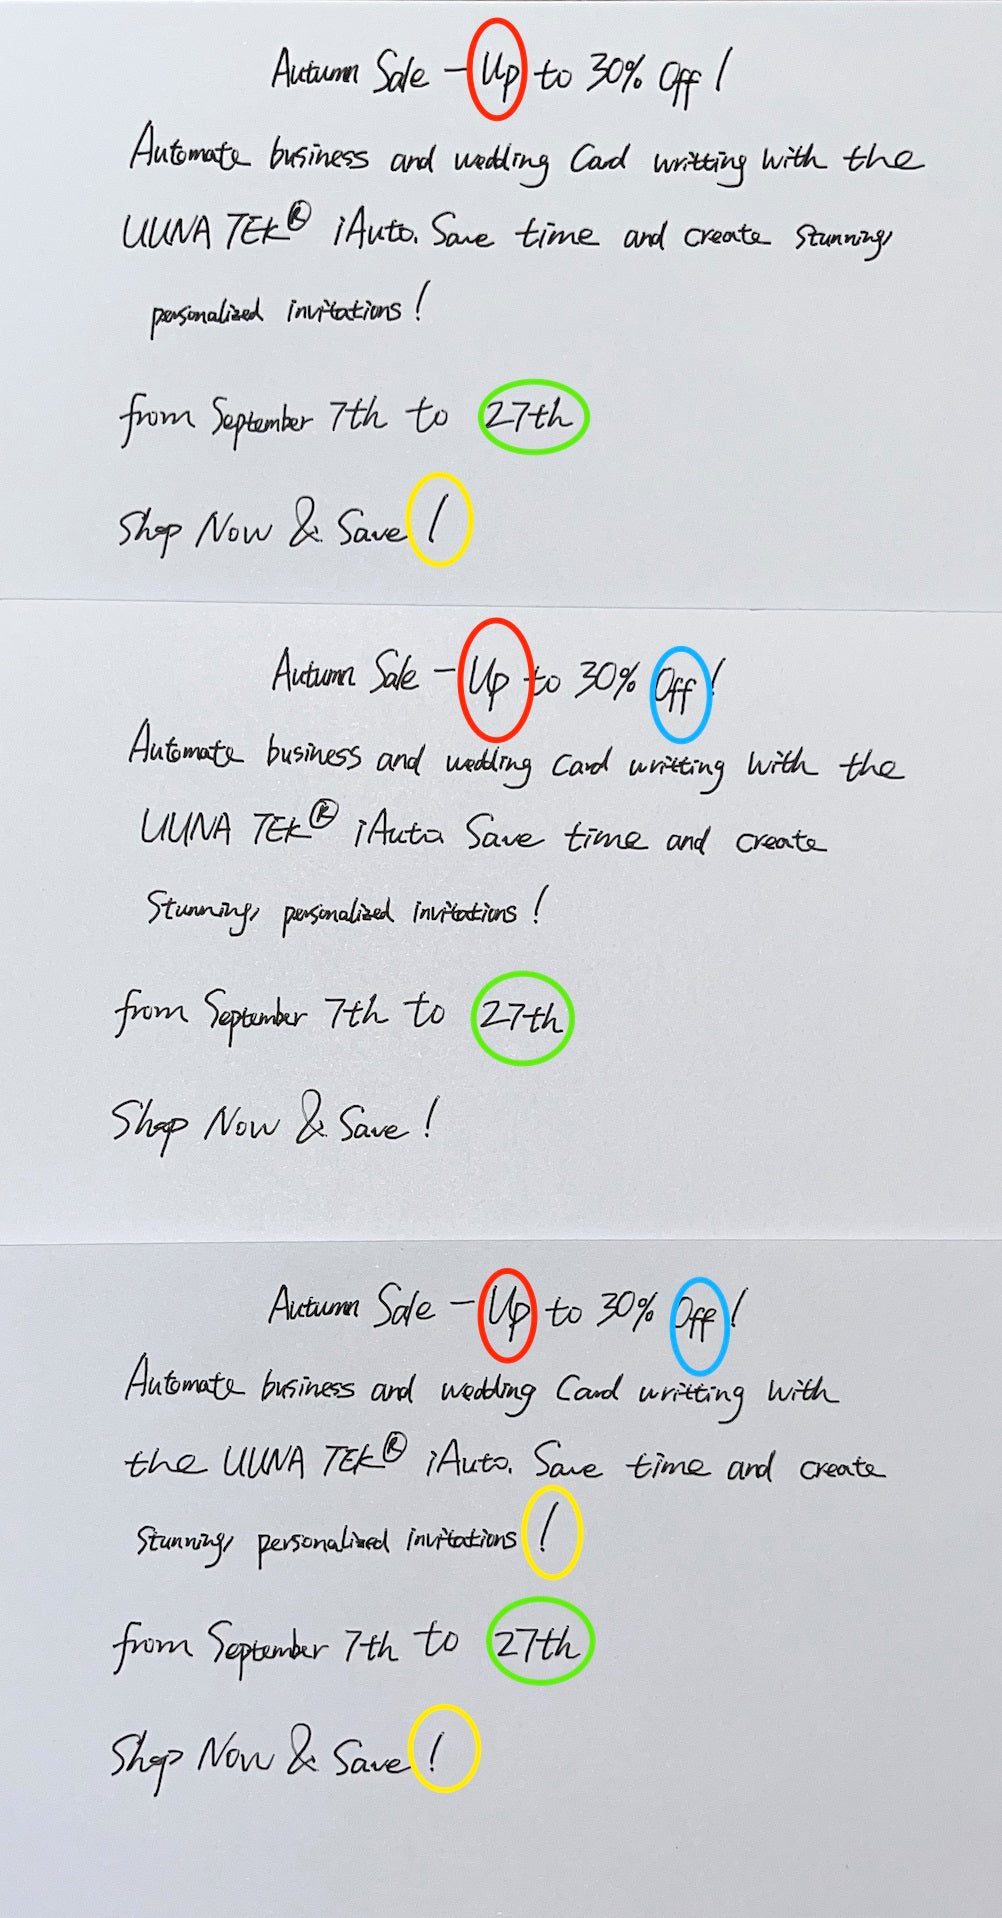 Autumn Sale – Up to 30% Off!
Automate business and wedding Card writting with the
UUNA TEK® iAuto. Save time and create stunning,
personalized invitations!
from September 7th to 27th
Shop Now & Save!
Autumn Sale – Up to 30% Off!
Automate business and wedding Card writting with the
UUNA TEK® iAuto. Save time and create
Stunning, personalized invitations!
from September 7th to 27th
Shop Now & Save!
Autumn Sale – Up to 30% Off!
Automate business and wedding Card writting with
the UUNA TEK® iAuto. Save time and create
Stunning, personalized invitations!
from September 7th to 27th
Shop Now & Save!